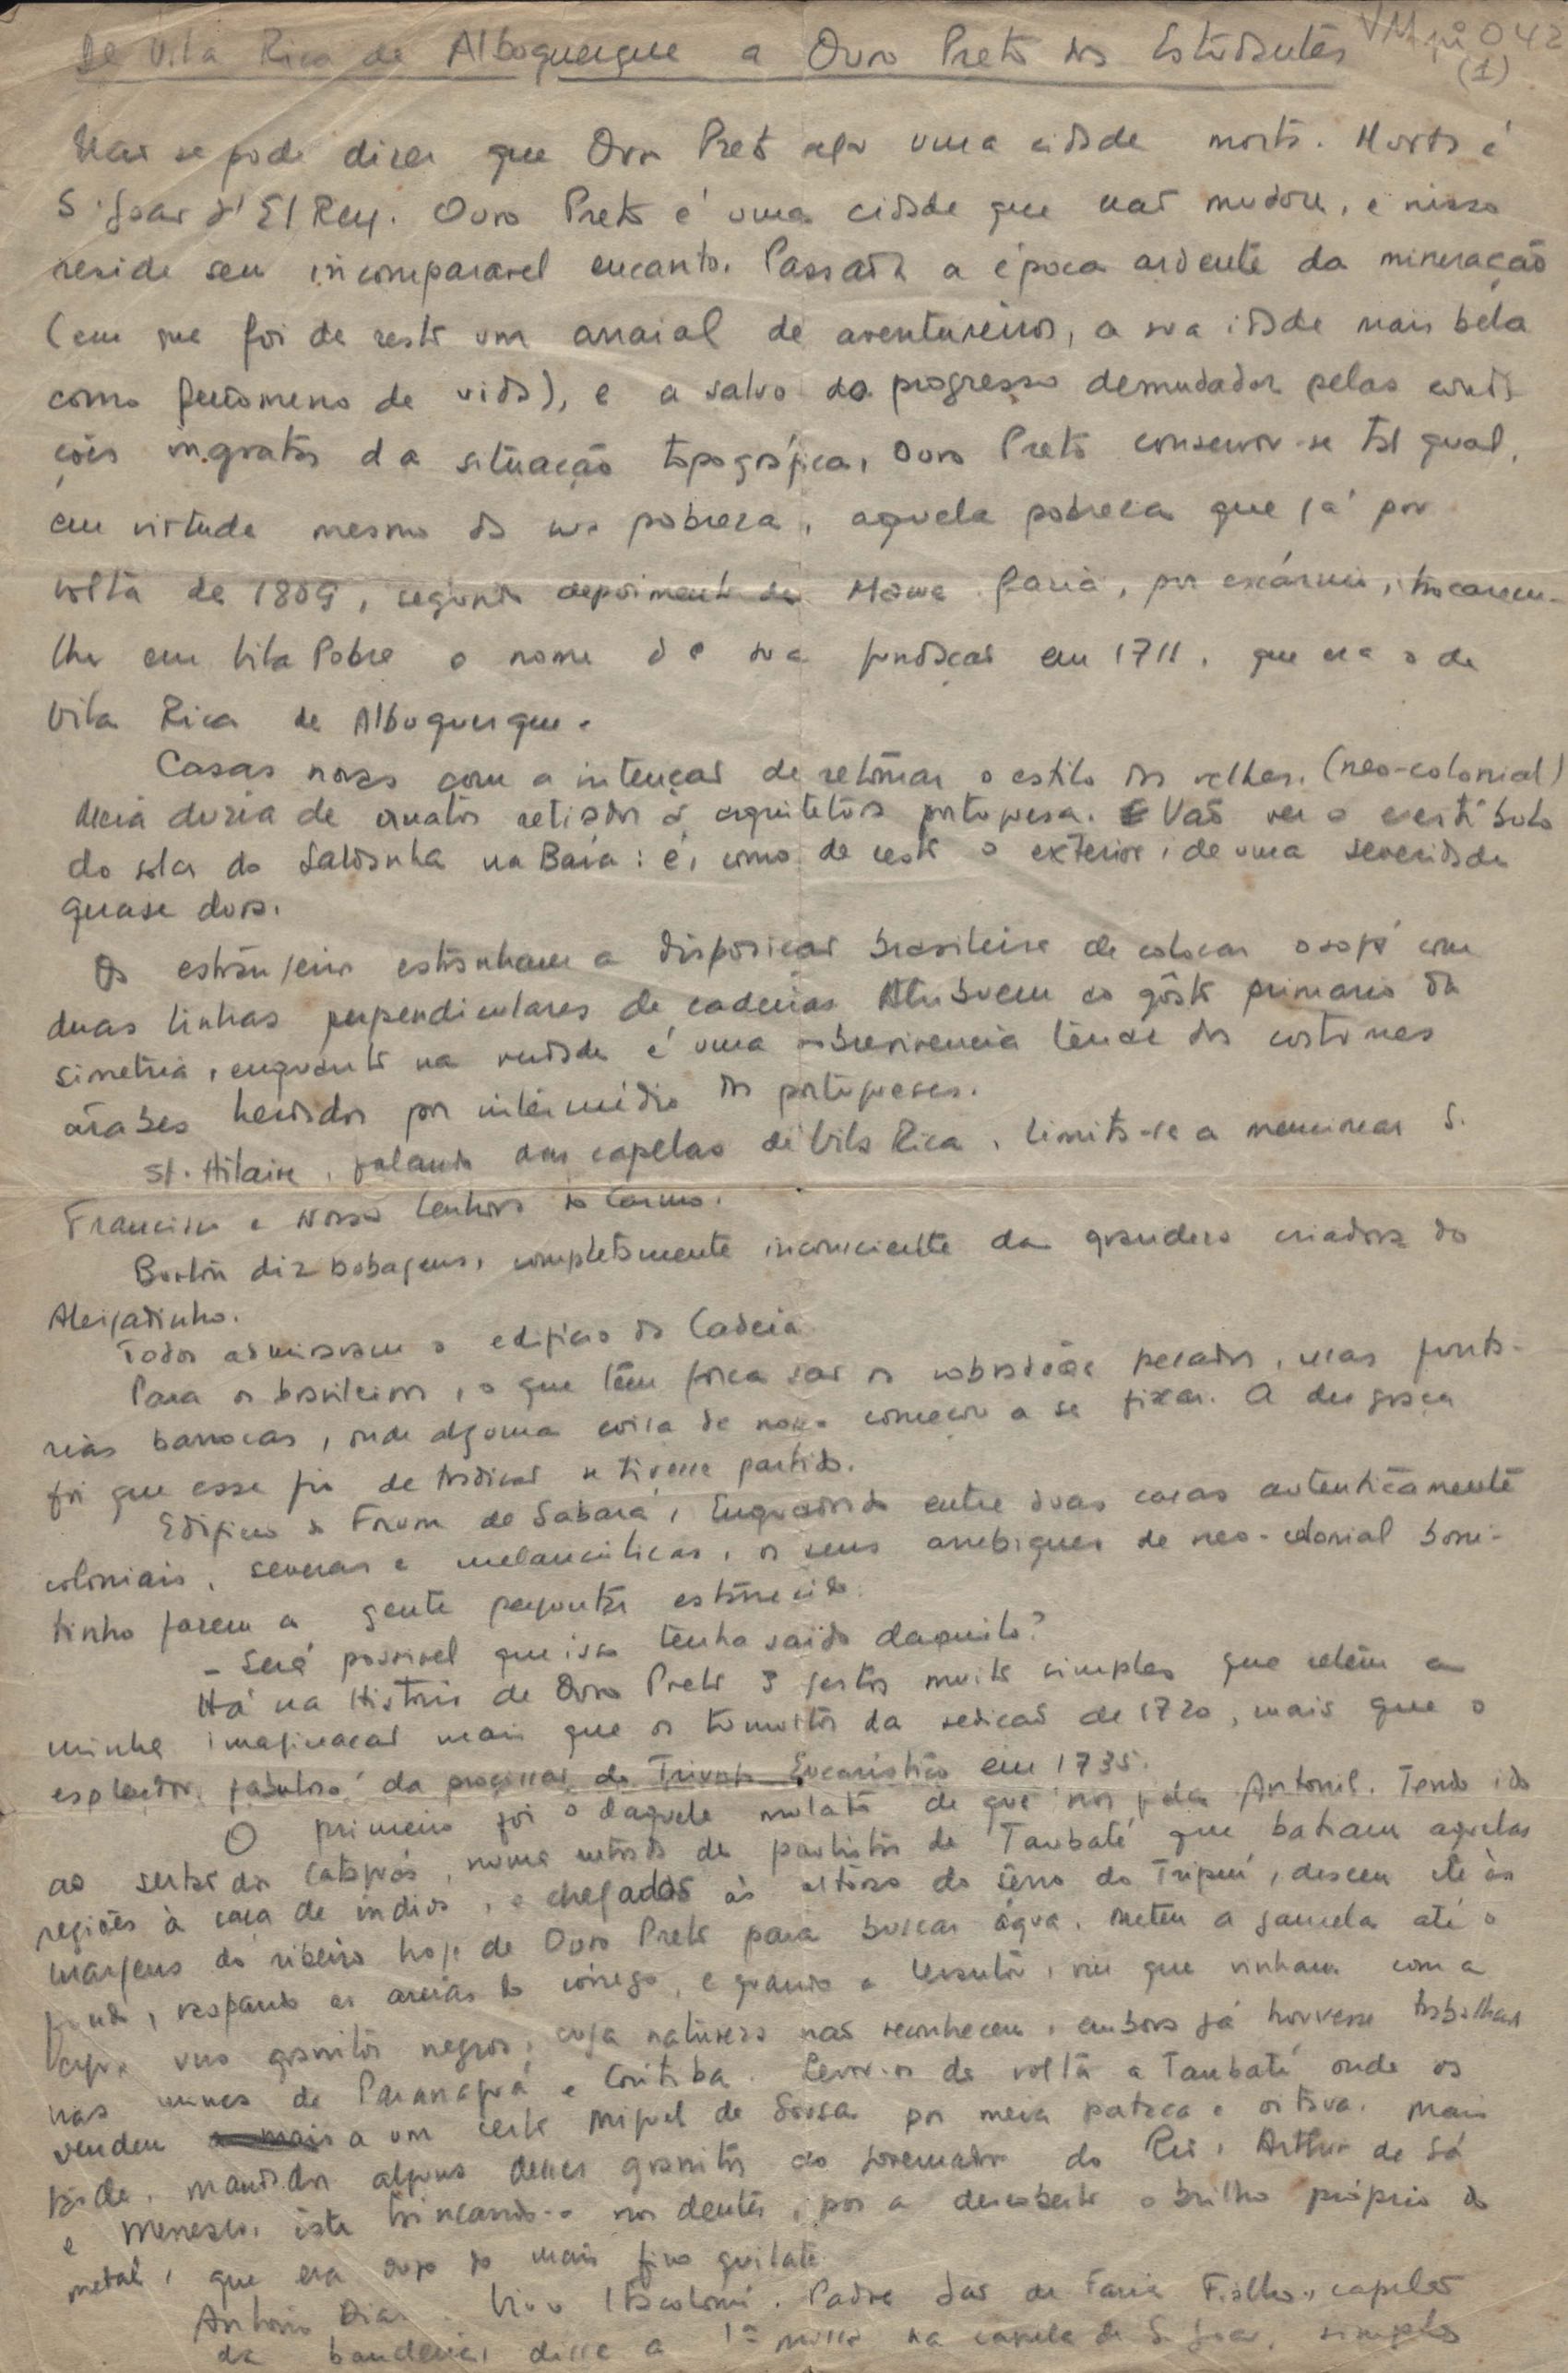 De Vila Rica de Albuquerque a Ouro Preto dos Estudantes
VM pi 042
(1)
Não se pode dizer que Ouro Preto seja uma cidade morta. Morta é
S. João d'El Rey. Ouro Preto é uma cidade que não mudou, e nisso
reside seu incomparavel encanto. Passada a época ardente da mineração
(em que foi de resto um arraial de aventureiros, a sua idade mais bela
como fenomeno de vida), e a salvo do progresso demudador pelas condi-
ções ingratas da situação topográfica, Ouro Preto conservou-se tal qual,
em virtude mesmo da sua pobreza, aquela pobreza que já por
volta de 1809, segundo depoimento de Mawe fazia, por escárneo, trocarem-
lhe em Vila Pobre o nome de sua fundação em 1711, que era o de
Vila Rica de Albuquerque.
Casas novas com a intenção de retomar o estilo das velhas. (neo-colonial)
Meia duzia de ornatos retirados á arquitetura portuguesa. Vão ver o vestíbulo
do solar do Saldanha na Baía: é, como de resto o exterior, de uma severidade
quase dura.
Os estrangeiros estranham a disposição brasileira de colocar o sofá com
duas linhas perpendiculares de cadeiras. Atribuem ao gôsto primario da
simetria, enquanto na verdade é uma sobrevivencia tenaz dos costumes
árabes herdados por intermédio dos portugueses.
St. Hilaire, falando das capelas de Vila Rica, limita-se a mencionar S.
Francisco e Nossa Senhora do Carmo.
Burton diz bobagens, completamente inconsciente da grandeza criadora do
Aleijadinho.
Todos admiravam o edificio da Cadeia
Para os brasileiros, o que têm força são os sobradões pesados, mas
barrocas, onde alguma coisa de nosso começou a se fixar. A desgraça
foi que esse fio de tradição se tivesse partido.
Edificio do Forum de Sabará, Enquadrado entre duas casas autenticamente
coloniais, severas e melancólicas, os seus arrebiques de neo-colonial boni-
tinho fazem a gente perguntar estarrecido:
- Será possivel que isso tenha saido daquilo?
Há na Historia de Ouro Preto 3 gestos muito simples que retêm a
minha imaginação mais que os tumultos da sedição de 1720, mais que o
esplendor fabuloso da procissão do Triunfo Eucaristico em 1735.
O primeiro foi o daquele mulato de que nos fala Antonil. Tendo ido
ao sertão dos Cataguás, numa entrada de paulistas de Taubaté que batiam aquelas
regiões à caça de indios, e chegados às alturas do sêrro do Tripuí, desceu ele às
margens do ribeiro hoje de Ouro Preto para buscar água. Meteu a gamela até o
fundo, raspando as areias do córrego, e quando a levantou, viu que vinham com a
agua uns granitos negros, cuja natureza não reconheceu, embora já houvesse trabalhado
nas minas de Paranaguá e Coritiba. Levou-os de volta a Taubaté onde os
vendeu a um certo Miguel de Sousa por meia pataca a oitava. Mais
tarde, mandados alguns desses granitos ao governador do Rio, Arthur de Sá
e Meneses, êste trincando-o nos dentes, pos a descoberto o brilho próprio do
metal, que era ouro do mais fino quilate.
Antonio Dias. Viu o Itacolomi. Padre João de Faria Fialho, capelão
da bandeira, disse a 1ª missa na capela de S. João, simples